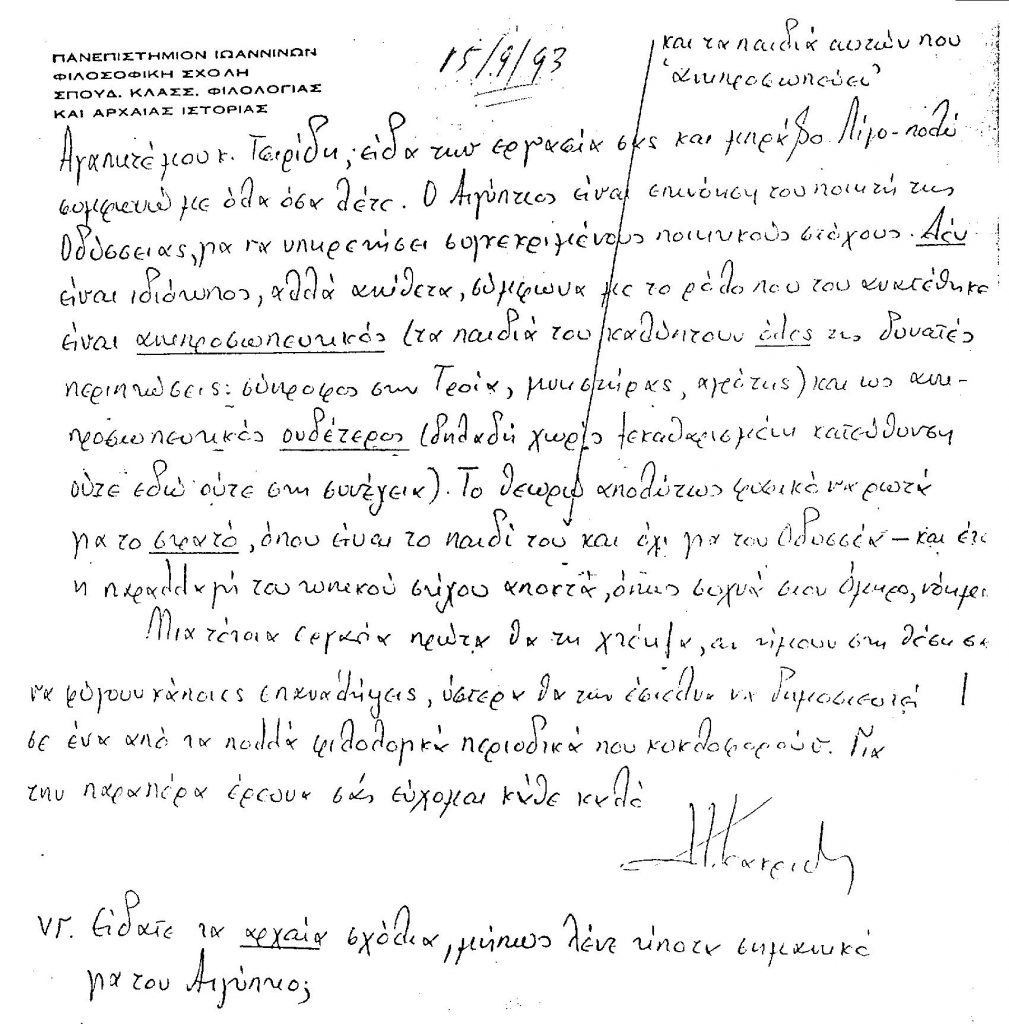 ΠΑΝΕΠΙΣΤΗΜΙΟΝ ΙΩΑΝΝΙΝΩΝ
ΦΙΛΟΣΟΦΙΚΗ ΣΧΟΛΗ
ΣΠΟΥΔ. ΚΛΑΣΣ. ΦΙΛΟΛΟΓΙΑΣ
ΚΑΙ ΑΡΧΑΙΑΣ ΙΣΤΟΡΙΑΣ
15/9/93
και τα παιδιά αυτών που
“αντιπροσωπεύει”
Αγαπητέ μου κ. Τσιρίδη, είδα την εργασία σας και μπράβο. Λίγο-πολύ
συμφωνώ με όλα όσα λέτε. Ο Αιγύπτιος είναι επινόηση του ποιητή της
Οδύσσειας, για να υπηρετήσει συγκεκριμένους ποιητικούς στόχους. Δεν
είναι ιδιότυπος, αλλά αντίθετα, σύμφωνα με το ρόλο που του ανατέθηκε
είναι αντιπροσωπευτικός (τα παιδιά του καλύπτουν όλες τις δυνατές
περιπτώσεις: σύντροφος στην Τροία, μνηστήρας, αγρότης) και ως αντι-
προσωπευτικός ουδέτερος (δηλαδή χωρίς ξεκαθαρισμένη κατεύθυνση
ούτε εδώ ούτε στη συνέχεια). Το θεωρώ απολύτως φυσικό να ρωτά
για το στρατό, όπου είναι το παιδί του και όχι για τον Οδυσσέα – και έτσι
η παραλλαγή του τυπικού στίχου αποκτά, όπως συχνά στον Όμηρο, νόημα.
Μια τέτοια εργασία πρώτα θα τη χτένιζα, αν ήμουν στη θέση σα
να φύγουν κάποιες επαναλήψεις, ύστερα θα την έστελνα να δημοσιευτεί
σε ένα από τα πολλά φιλολογικά περιοδικά που κυκλοφορούν. Για
την παραπέρα έρευνα σάς εύχομαι κάθε καλό
Φ. Κακριδής
ΥΓ. Είδατε τα αρχαία σχόλια, μήπως λένε τίποτα σημαντικό
για τον Αιγύπτιο;